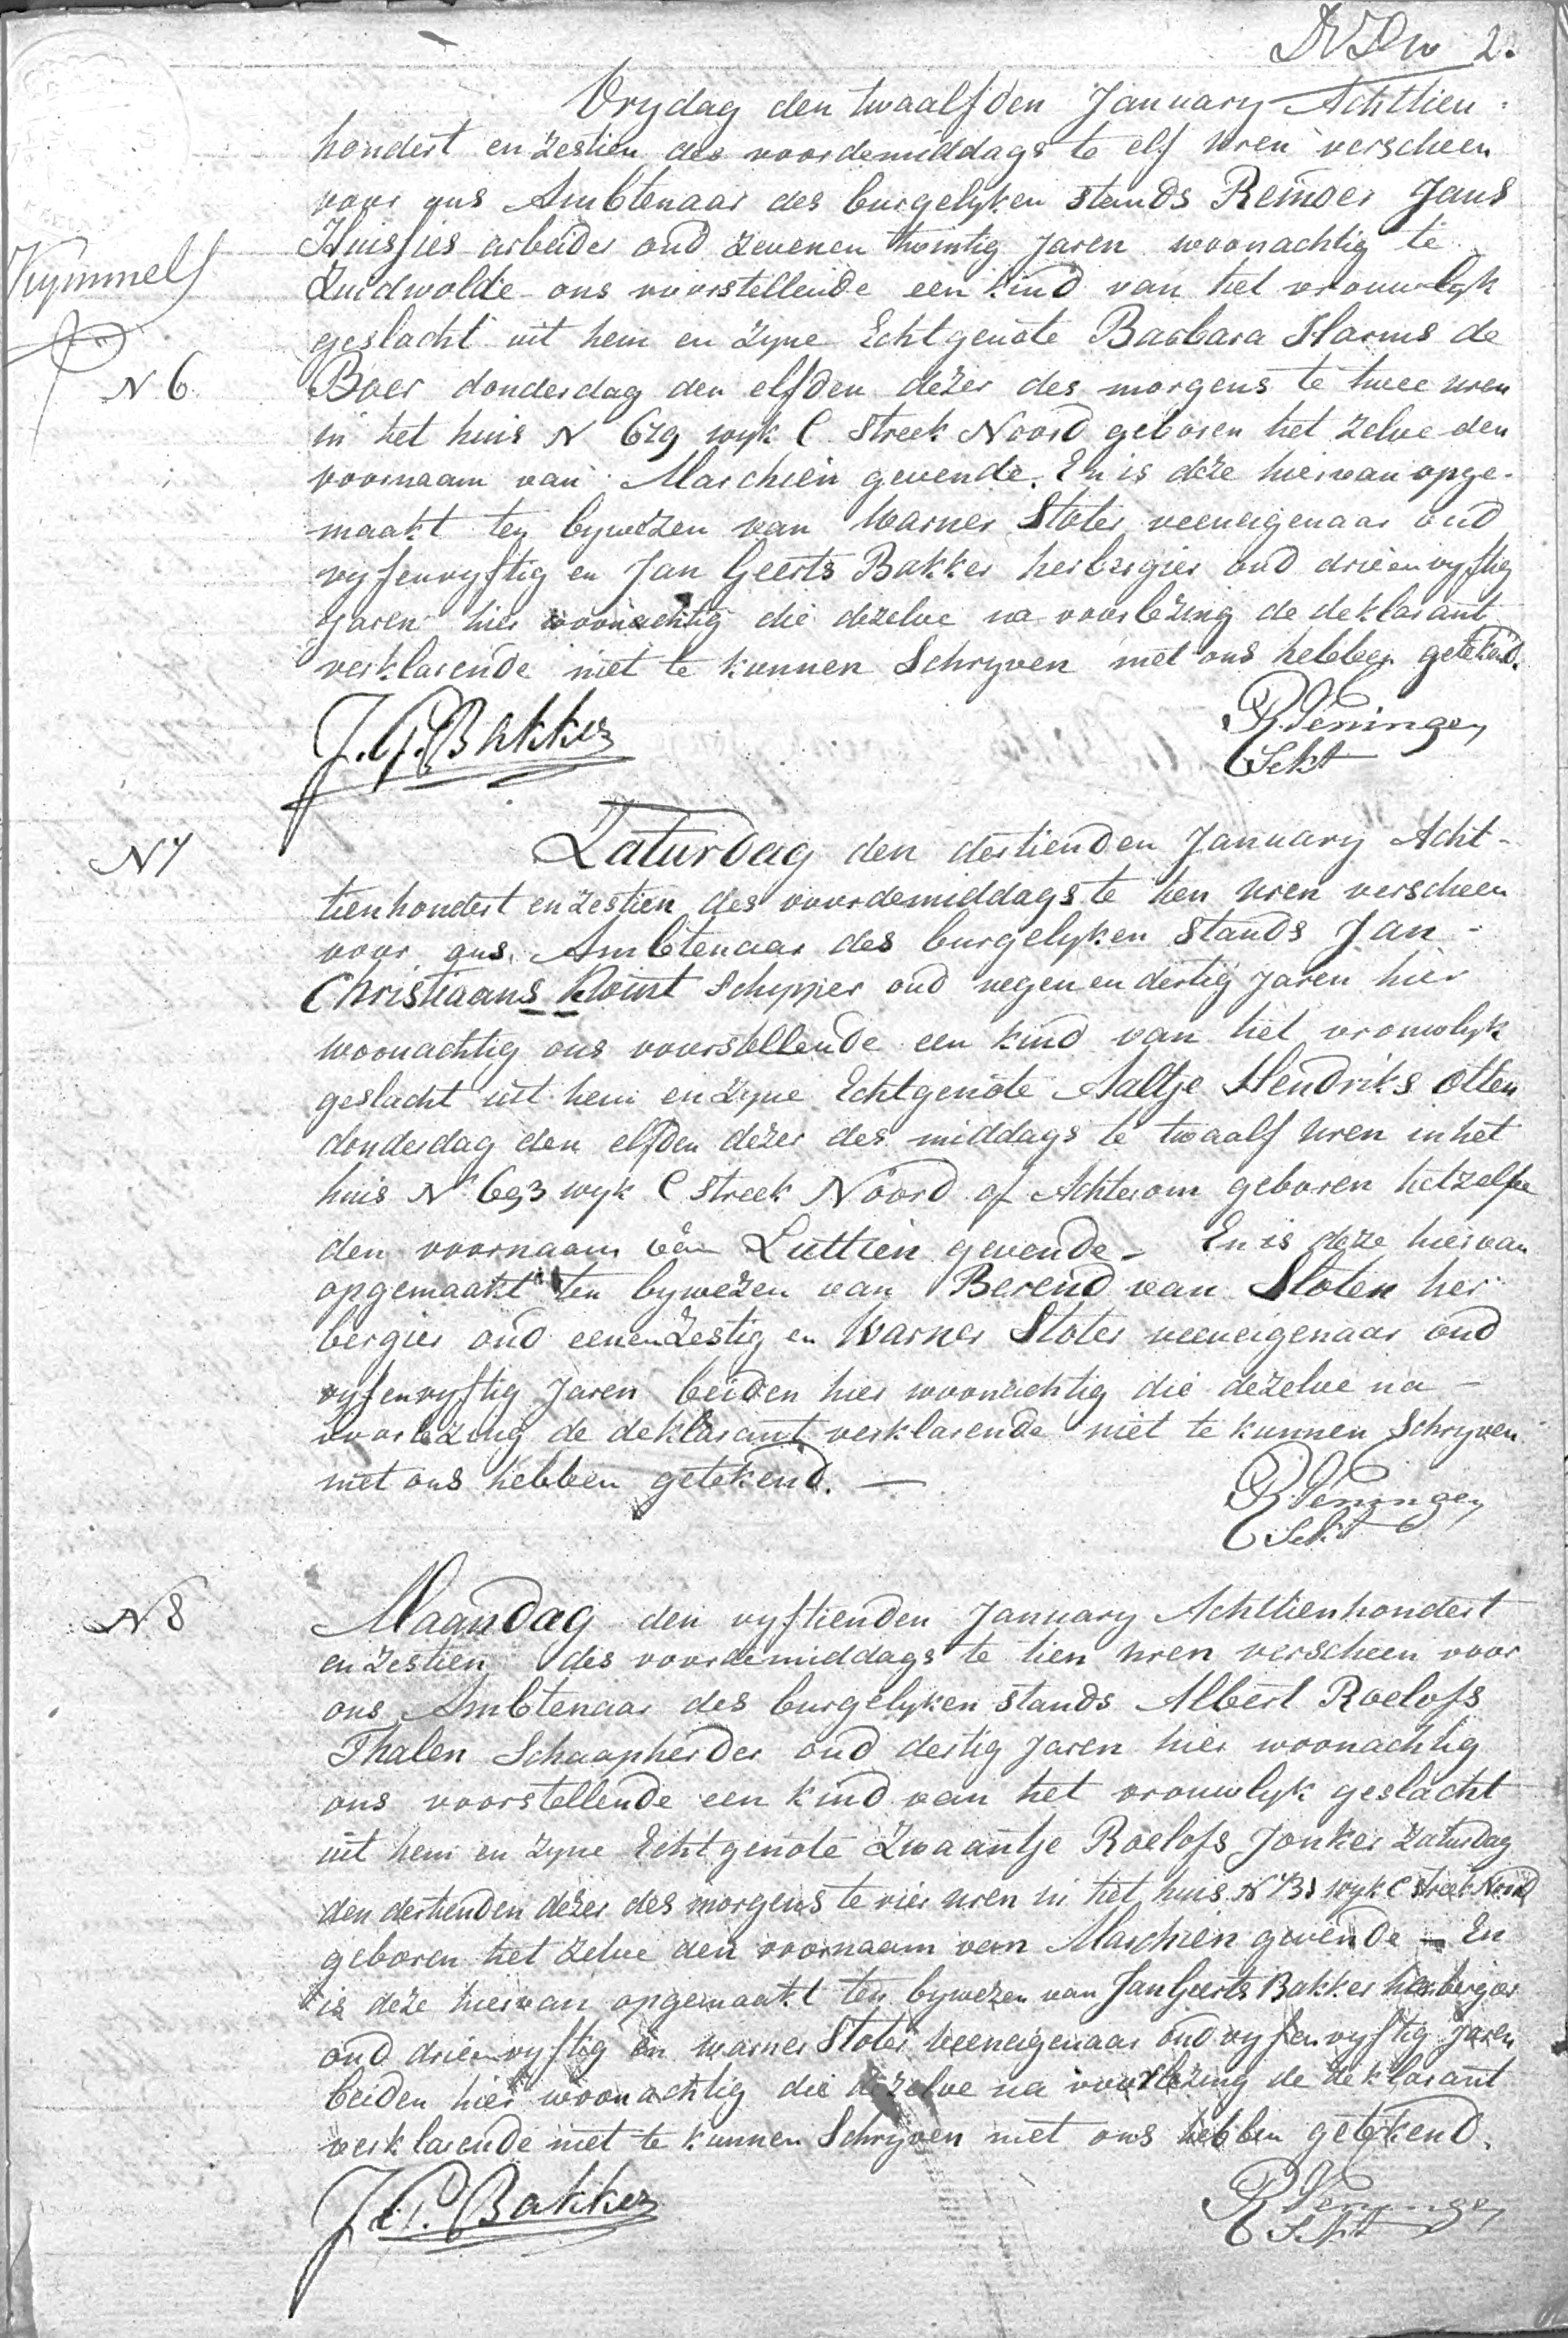 2.
Vrydag den twaalfden January Achttien-
hondert en zestien des voordemiddags te elf uren verscheen
voor ons Ambtenaar des burgelyken stands Reinder Jans
Huisjes arbeider oud zevenen twintig Jaren woonachtig te
Zuidwolde ons voorstellende een kind van het vrouwlyk
Kymmell
geslacht uit hem en zyne Echtgenote Barbara Harms de
N 6
Boer donderdag den elfden dezer des morgens te twee uren
in het huis N 679 wyk C Streek Noord geboren het zelve den
voornaam van Marchien gevende. En is deze hiervan opge-
maakt ten bywezen van Warner Stoter veeneigenaar oud
vyfenvyftig en Jan Geerts Bakker herbergier oud drieenvyftig
jaren hier woonachtig die dezelve na voorlezing de deklarant
verklarende niet te kunnen Schryven met ons hebben getekend.
J.G. Bakker
Sekt
N 7
Zaturdag den dertienden January Acht-
tienhondert en zestien des voordemiddags te tien uren verscheen
voor ons Ambtenaar des burgelyken Stands Jan -
Christiaans Kloint Schipper oud negenendertig Jaren hier
woonachtig ons voorstellende een kind van het vrouwlyk
geslacht uit hem en zyne Echtgenote Aaltje Hendriks Otten
donderdag den elfden dezer des middags te twaalf uren in het
huis N 693 wyk C Streek Noord of Achterom geboren hetzelve
den voornaam van Luttien gevende - En is deze hiervan
opgemaakt ten bywezen van Berend van Sloten her
bergier oud eenenzestig en Warner Stoter veeneigenaar oud
vyfenvyftig Jaren beiden hier woonachtig die dezelve na -
voorlezing de deklarant verklarende niet te kunnen Schryven
met ons hebben getekend. —
Sekt
N 8
Maandag den vyftienden January Achttienhondert
en zestien des voordemiddags te tien uren verscheen voor
ons Ambtenaar des burgelyken stands Albert Roelofs
Thalen Schaapherder oud dertig Jaren hier woonachtig
ons voorstellende een kind van het vrouwlyk geslacht
uit hem en zyne Echtgenote Zwaantje Roelofs Jonker Zaturdag
den dertienden dezer des morgens te vier uren in het huis N 731 wyk C Streek Noord
geboren het zelve den voornaam van Marchien gevende - En
is deze hiervan opgemaakt ten bywezen van Jan Geerts Bakker herbergier
oud drieenvyftig en Warner Stoter veeneigenaar oud vyfenvyftig Jaren
beiden hier woonachtig die dezelve na voorlezing de deklarant
verklarende niet te kunnen Schryven met ons hebben getekend.
J.G. Bakker
Sekt